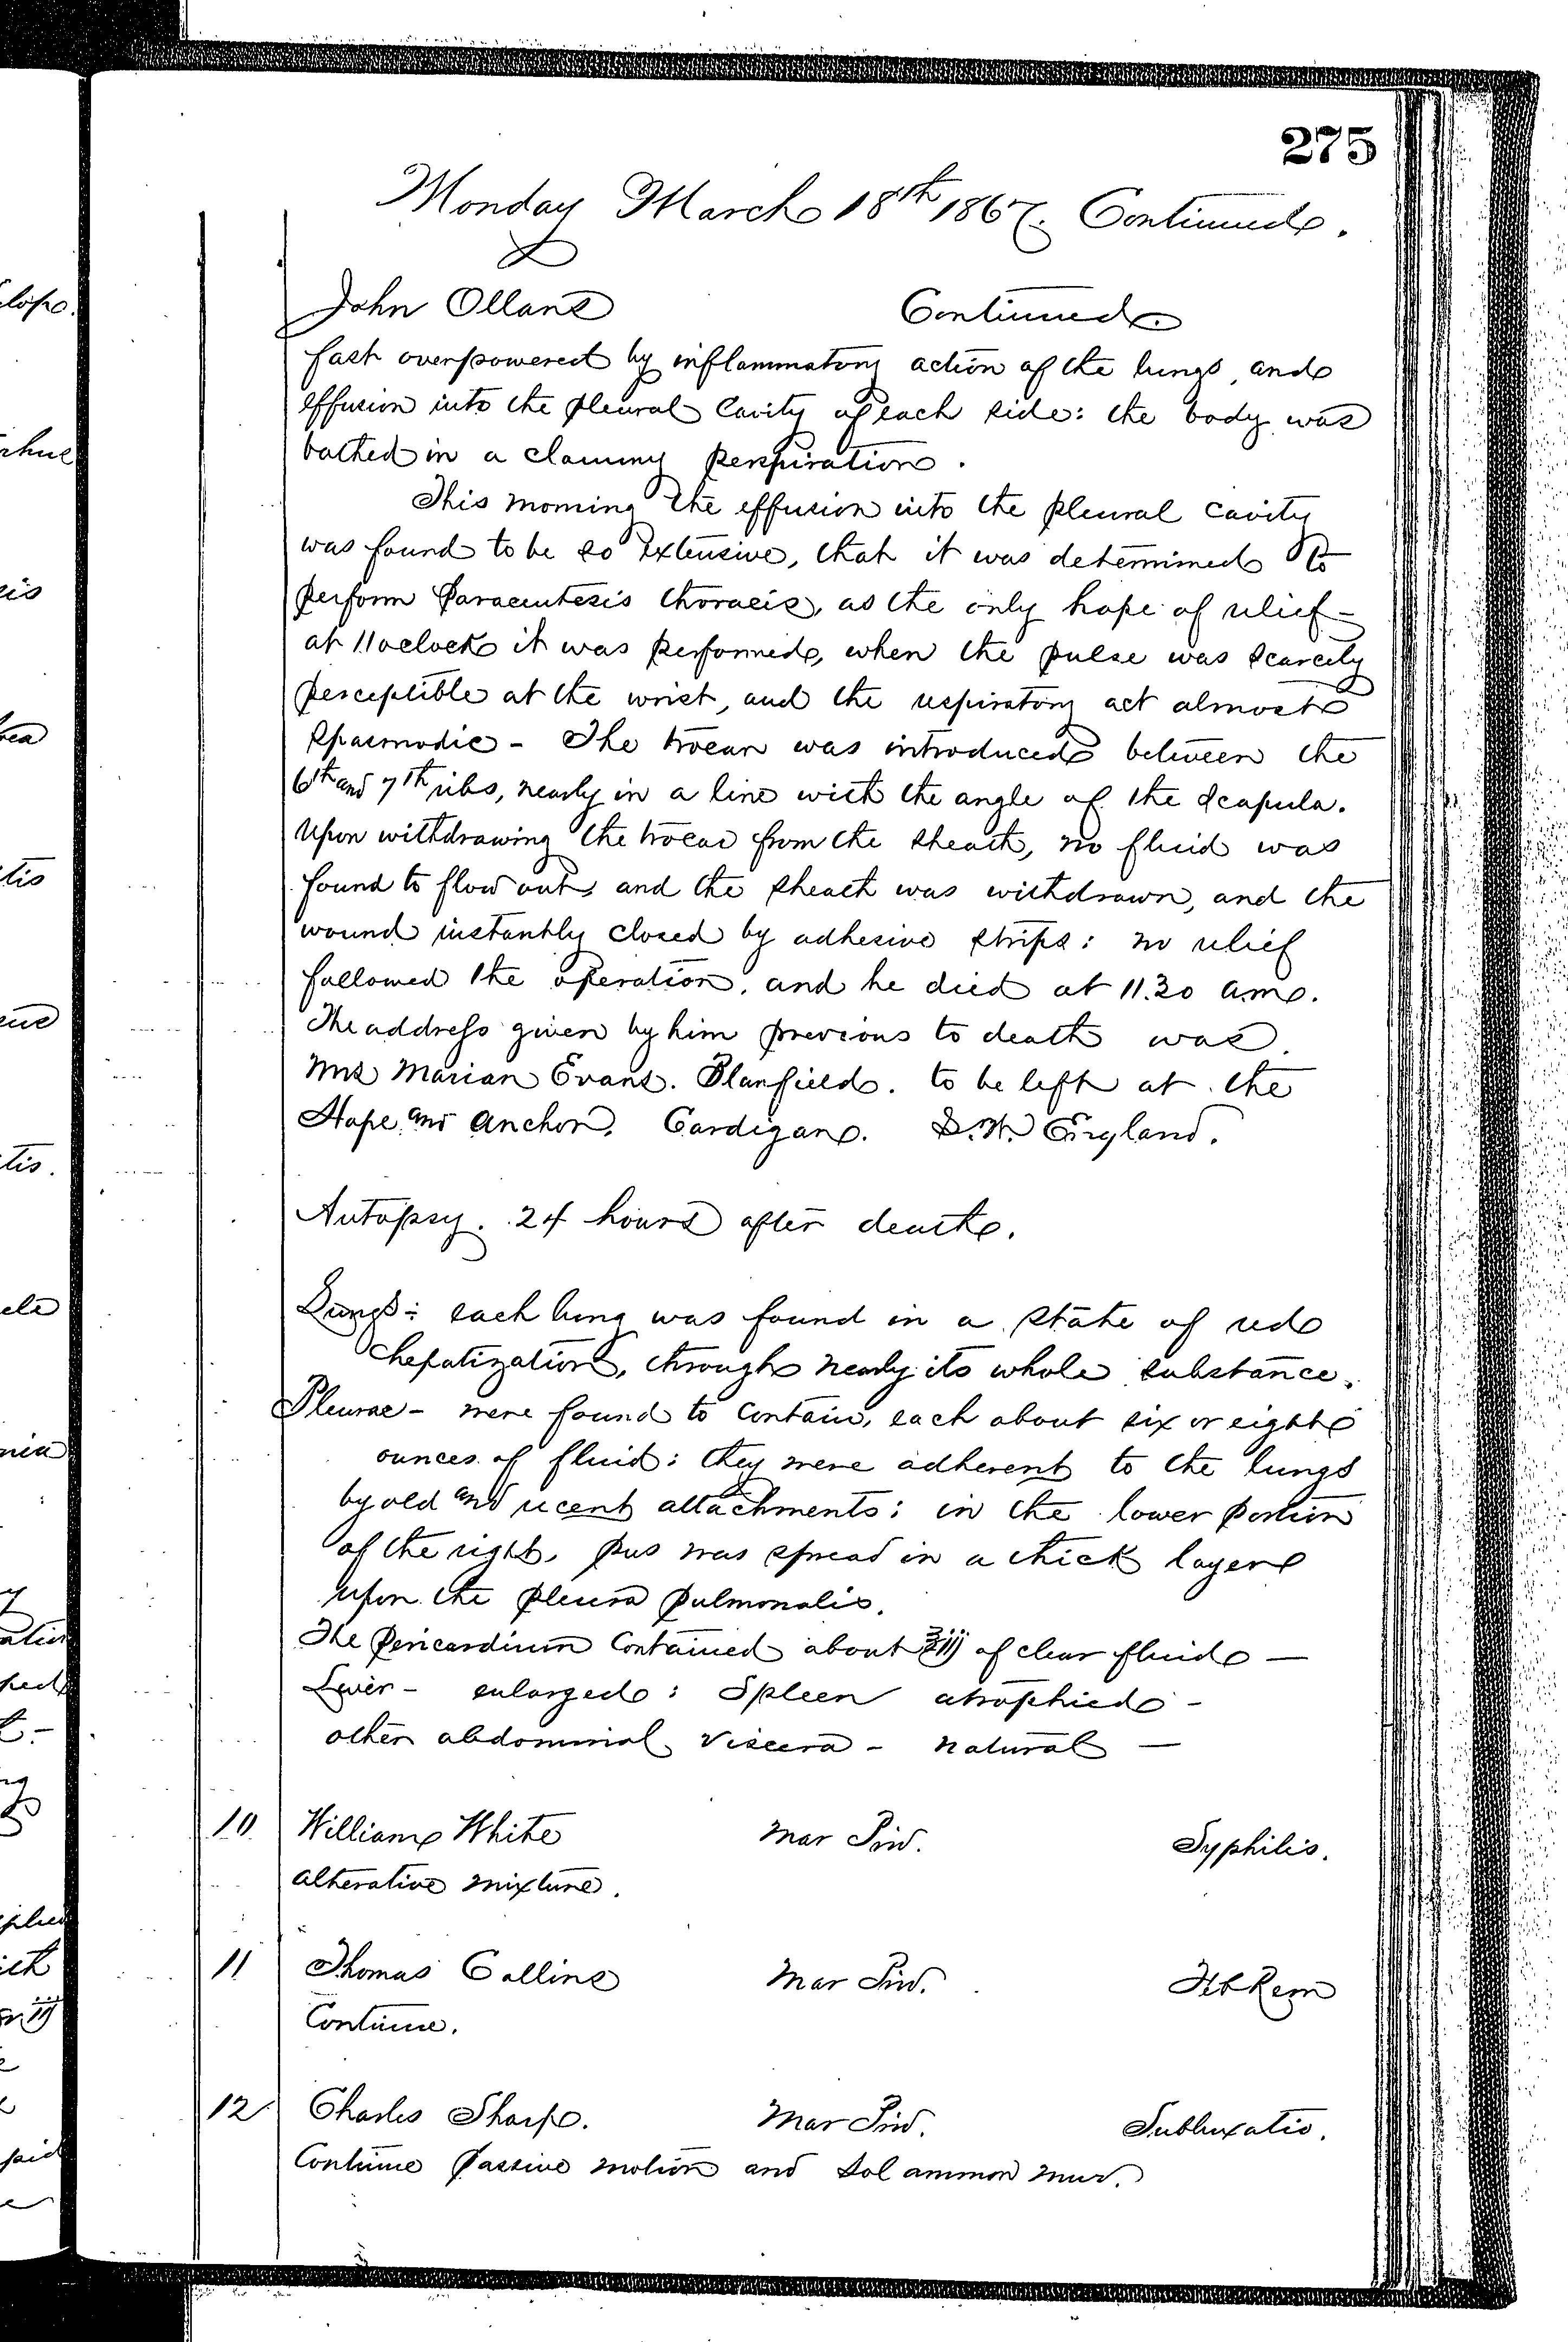 275
Monday March 18th 1867. Continued.
John Ollans Continued.
fast overpowered by inflammatory action of the lungs, and
effusion into the pleural cavity of each side: the body was
bathed in a clammy perspiration.
This morning the effusion into the pleural cavity
was found to be so extensive, that it was determined to
perform Paracentesis thoracis, as the only hope of relief -
at 11 oclock it was performed, when the pulse was scarcely
perceptible at the wrist, and the respiratory act almost
spasmodic - The trocar was introduced between the
6th and 7th ribs, nearly in a line with the angle of the scapula.
Upon withdrawing the trocar from the sheath, no fluid was
found to flow out, and the sheath was withdrawn, and the
wound instantly closed by adhesive strips: no relief
followed the operation, and he died at 11.30 a.m.
The address given by him previous to death was
Mrs Marian Evans. Blanfield. to be left at the
Hope and Anchor, Cardigan. S.W. England.
Autopsy. 24 hours after death.
Lungs: each lung was found in a state of red
hepatization, through nearly its whole substance.
Pleurae - were found to contain, each about six or eight
ounces of fluid: they were adherent to the lungs
by old and recent attachments: in the lower portion
of the right, pus was spread in a thick layer
upon the pleura pulmonalis.
The Pericardium contained about ℥iij of clear fluid —
Liver - enlarged: Spleen atrophied -
other abdominal viscera - natural —
10 William White Mar Piw. Syphilis.
alterative mixture.
11 Thomas Collins Mar Piw. Feb Rem
Continue.
12 Charles Sharp. Mar Piw. Subluxatio.
Continue passive motion and Sol ammon mur.